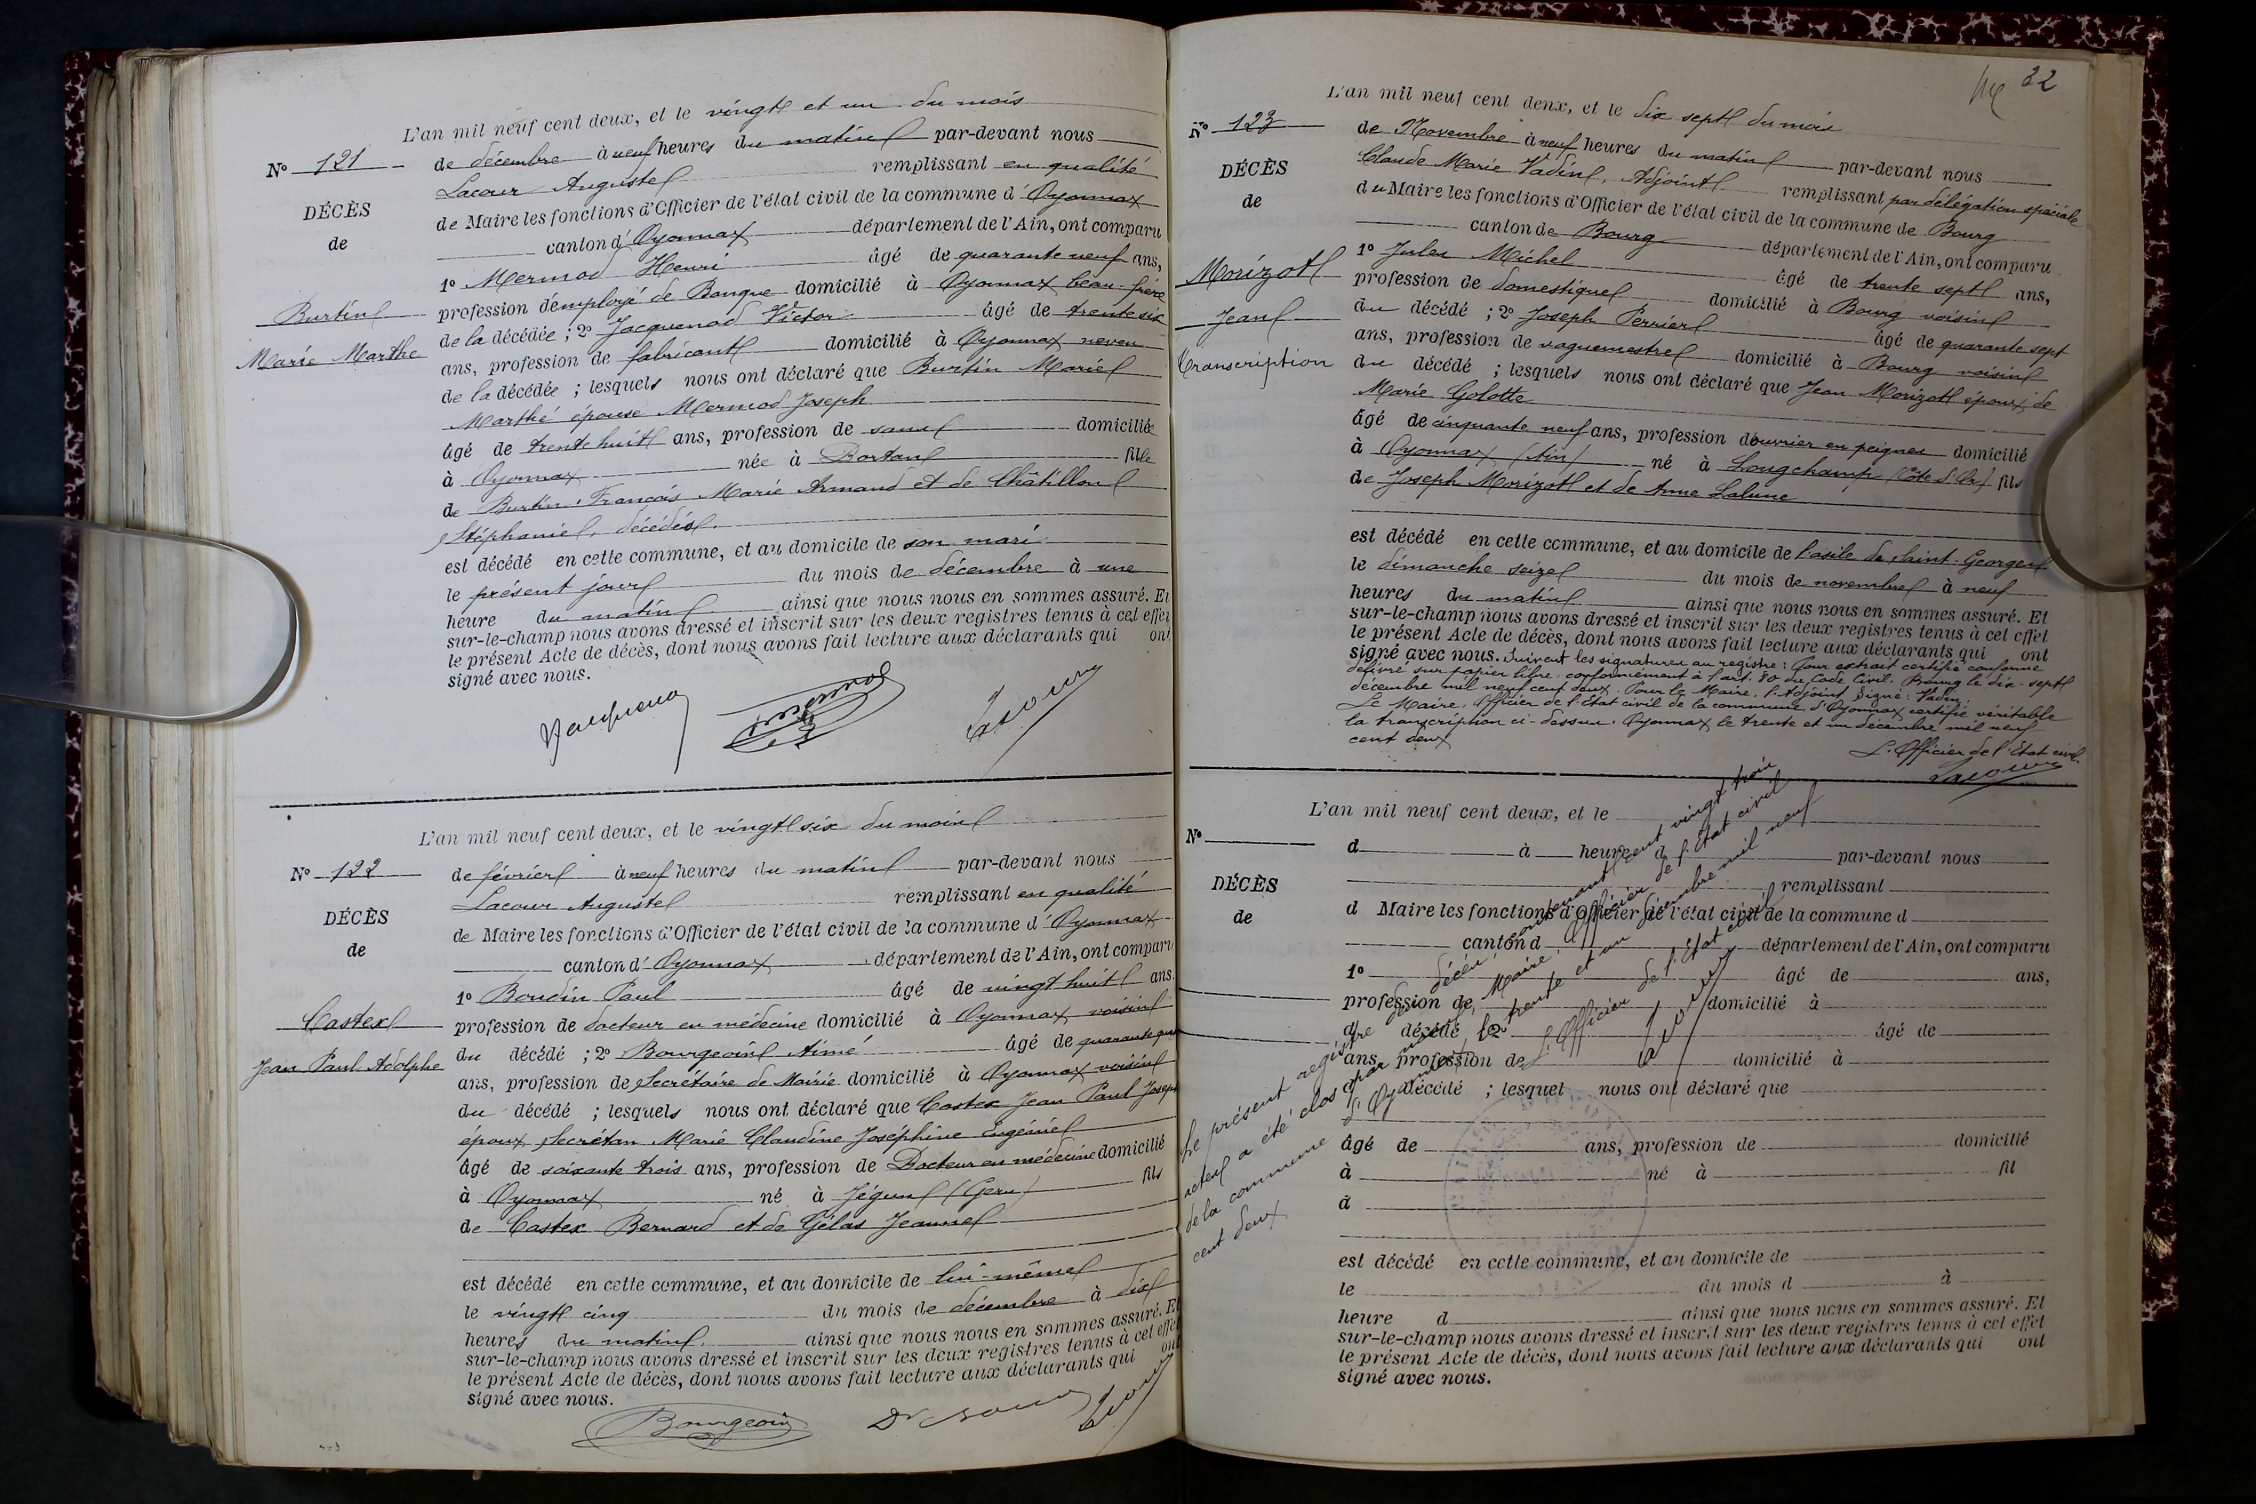 L'an mil neuf cent deux, et le vingt et un du mois
No 121 de décembre à neuf heures du matin par-devant nous
DÉCÈS Lacour Auguste remplissant en qualité
de de Maire les fonctions d'Officier de l'état civil de la commune d'Oyonnax
canton d'Oyonnax département de l'Ain, ont comparu
1o Mermod Henri âgé de quarante neuf ans,
Burtin profession d'employé de Banque domicilié à Oyonnax beau-frère
de la décédée ; 2o Jacquenod Victor âgé de trente six
Marie Marthe ans, profession de fabricant domicilié à Oyonnax neveu
de la décédée ; lesquels nous ont déclaré que Burtin Marie
Marthe épouse Mermod Joseph
âgé de trente huit ans, profession de sans domiciliée
à Oyonnax née à Dortan fille
de Burtin François Marie Armand et de Châtillon
Stéphanie, décédés.
est décédé en cette commune, et au domicile de son mari
le présent jour du mois de décembre à une
heure du matin ainsi que nous nous en sommes assuré. Et
sur-le-champ nous avons dressé et inscrit sur les deux registres tenus à cet effet
le présent Acte de décès, dont nous avons fait lecture aux déclarants qui ont
signé avec nous.
Jacquenod Mermod Lacour
L'an mil neuf cent deux, et le vingt six du mois
No 122 de février à neuf heures du matin par-devant nous
DÉCÈS Lacour Auguste remplissant en qualité
de de Maire les fonctions d'Officier de l'état civil de la commune d'Oyonnax
canton d'Oyonnax département de l'Ain, ont comparu
1o Boudin Paul âgé de vingt huit ans.
Castex profession de docteur en médecine domicilié à Oyonnax voisin
du décédé ; 2o Bourgeois Aimé âgé de quarante
Jean Paul Adolphe ans, profession de Secrétaire de Mairie domicilié à Oyonnax voisin
du décédé ; lesquels nous ont déclaré que Castex Jean Paul Joseph
époux Secrétan Marie Claudine Joséphine Eugénie
âgé de soixante trois ans, profession de Docteur en médecine domicilié
à Oyonnax né à Jégun (Gers) fils
de Castex Bernard et de Gélas Jeanne
est décédé en cette commune, et au domicile de lui-même
le vingt cinq du mois de décembre à dix
heures du matin. ainsi que nous nous en sommes assuré. Et
sur-le-champ nous avons dressé et inscrit sur les deux registres tenus à cet effet
le présent Acte de décès, dont nous avons fait lecture aux déclarants qui ont
signé avec nous.
Bourgeois Dr Lacour
32
L'an mil neuf cent deux, et le dix sept du mois
No 123 de Novembre à neuf heures du matin par-devant nous
DÉCÈS Claude Marie Vadin, Adjoint remplissant par délégation spéciale
de du Maire les fonctions d'Officier de l'état civil de la commune de Bourg
canton de Bourg département de l'Ain, ont comparu
Morizot 1o Jules Michel âgé de trente sept ans,
profession de domestique domicilié à Bourg voisin
Jean du décédé ; 2o Joseph Perrier âgé de quarante sept
ans, profession de vaguemestre domicilié à Bourg voisin
Transcription du décédé ; lesquels nous ont déclaré que Jean Morizot époux de
Marie Golotte
âgé de cinquante neuf ans, profession d'ouvrier en peignes domicilié
à Oyonnax (Ain) né à Longchamp (Côte d'Or) fils
de Joseph Morizot et de Anne Lalune
est décédé en cette commune, et au domicile de l'asile de Saint-Georges
le dimanche seize du mois de novembre à neuf
heures du matin ainsi que nous nous en sommes assuré. Et
sur-le-champ nous avons dressé et inscrit sur les deux registres tenus à cet effet
le présent Acte de décès, dont nous avons fait lecture aux déclarants qui ont
signé avec nous. Suivent les signatures au registre : Pour extrait certifié conforme
délivré sur papier libre, conformément à l'art. 80 du Code Civil. Bourg le dix-sept
décembre mil neuf cent deux. Pour le Maire, l'Adjoint Signé : Vadin
Le Maire, Officier de l'état civil de la commune d'Oyonnax certifie véritable
la transcription ci-dessus. Oyonnax le trente et un décembre mil neuf
cent deux
L'Officier de l'état civil.
Lacour
L'an mil neuf cent deux, et le
No d à heure d par-devant nous
DÉCÈS remplissant
de d Maire les fonctions d'Officier de l'état civil de la commune d
canton d département de l'Ain, ont comparu
1o âgé de ans,
profession de domicilié à
d décédé 2o âgé de
ans, profession de domicilié à
d décédé ; lesquel nous ont déclaré que
âgé de ans, profession de domicilié
à né à fil
d
est décédé en cette commune, et au domicile de
le du mois d à
heure d ainsi que nous nous en sommes assuré. Et
sur-le-champ nous avons dressé et inscrit sur les deux registres tenus à cet effet
le présent Acte de décès, dont nous avons fait lecture aux déclarants qui ont
signé avec nous.
Le présent registre de décès, contenant cent vingt trois
actes a été clos par nous, Maire, Officier de l'état civil
de la commune d'Oyonnax, le trente et un décembre mil neuf
cent deux
L'Officier de l'état civil
Lacour